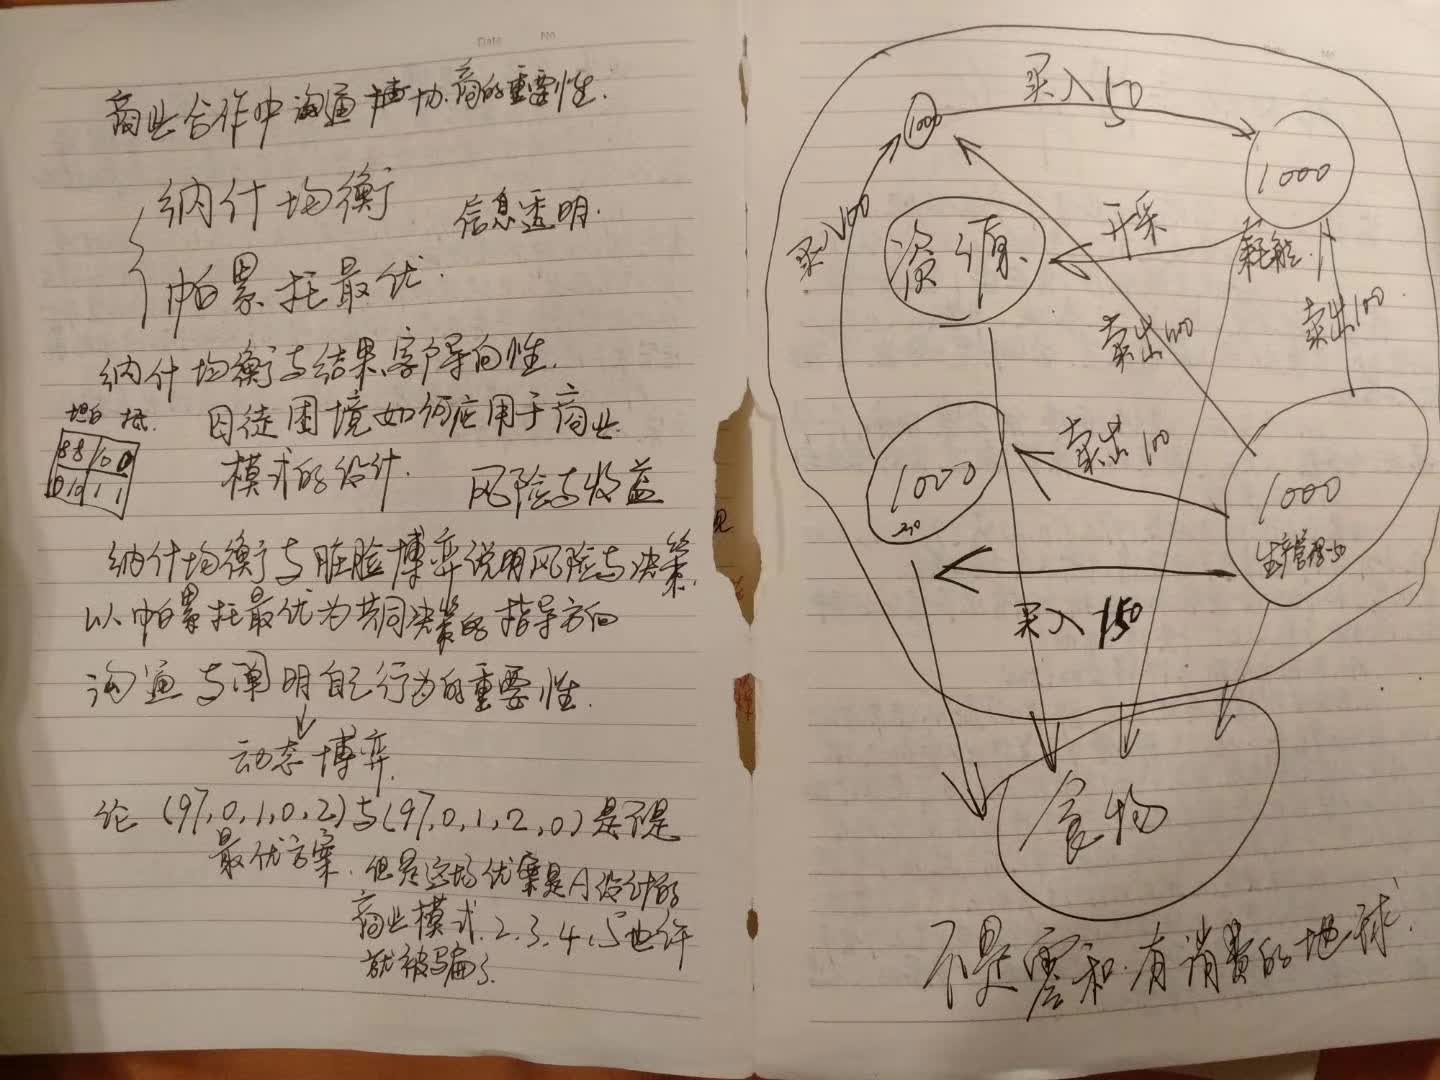 Date No
商业合作中沟通 协商的重要性.
纳什均衡
信息透明.
帕累托最优.
纳什均衡与结果,客户导向性.
坦白 抵.
囚徒困境如何应用于商业
8 8 10 0
0 10 1 1
模式的设计.
风险与收益
纳什均衡与脏脸博弈说明风险与决策.
以帕累托最优为共同决策的指导方向
沟通与阐明自己行为的重要性.
动态博弈.
论 (97,0,1,0,2)与(97,0,1,2,0)是不是
最优方案.但是这场优案是A设计的
商业模式.2、3、4、5也许
就被骗了.
Date No
买入150
1000
1000
买入100
资源
开采
耗能.
卖出100
卖出100
卖出100
1000
1000
生产管理
买入150
食物
不是零和.有消费的地球.